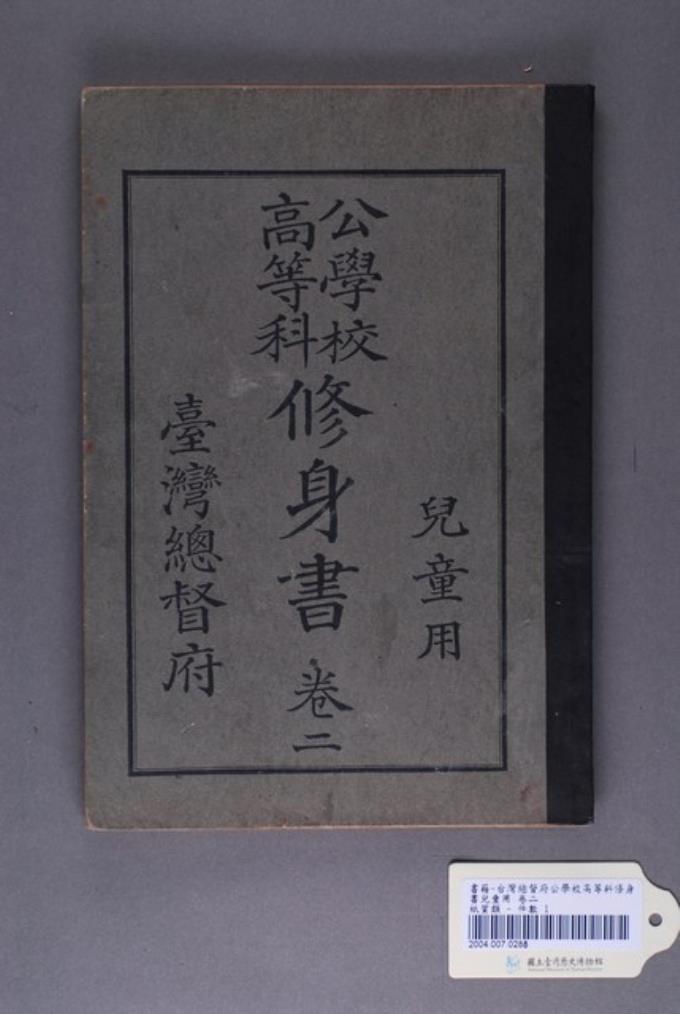 兒童用
公學校
高等科
修身書 卷二
臺灣總督府
書籍-台灣總督府公學校高等科修身
書兒童用 卷二
紙質類 - 件數 1
2004.007.0288
國立臺灣歷史博物館
National Museum of Taiwan History